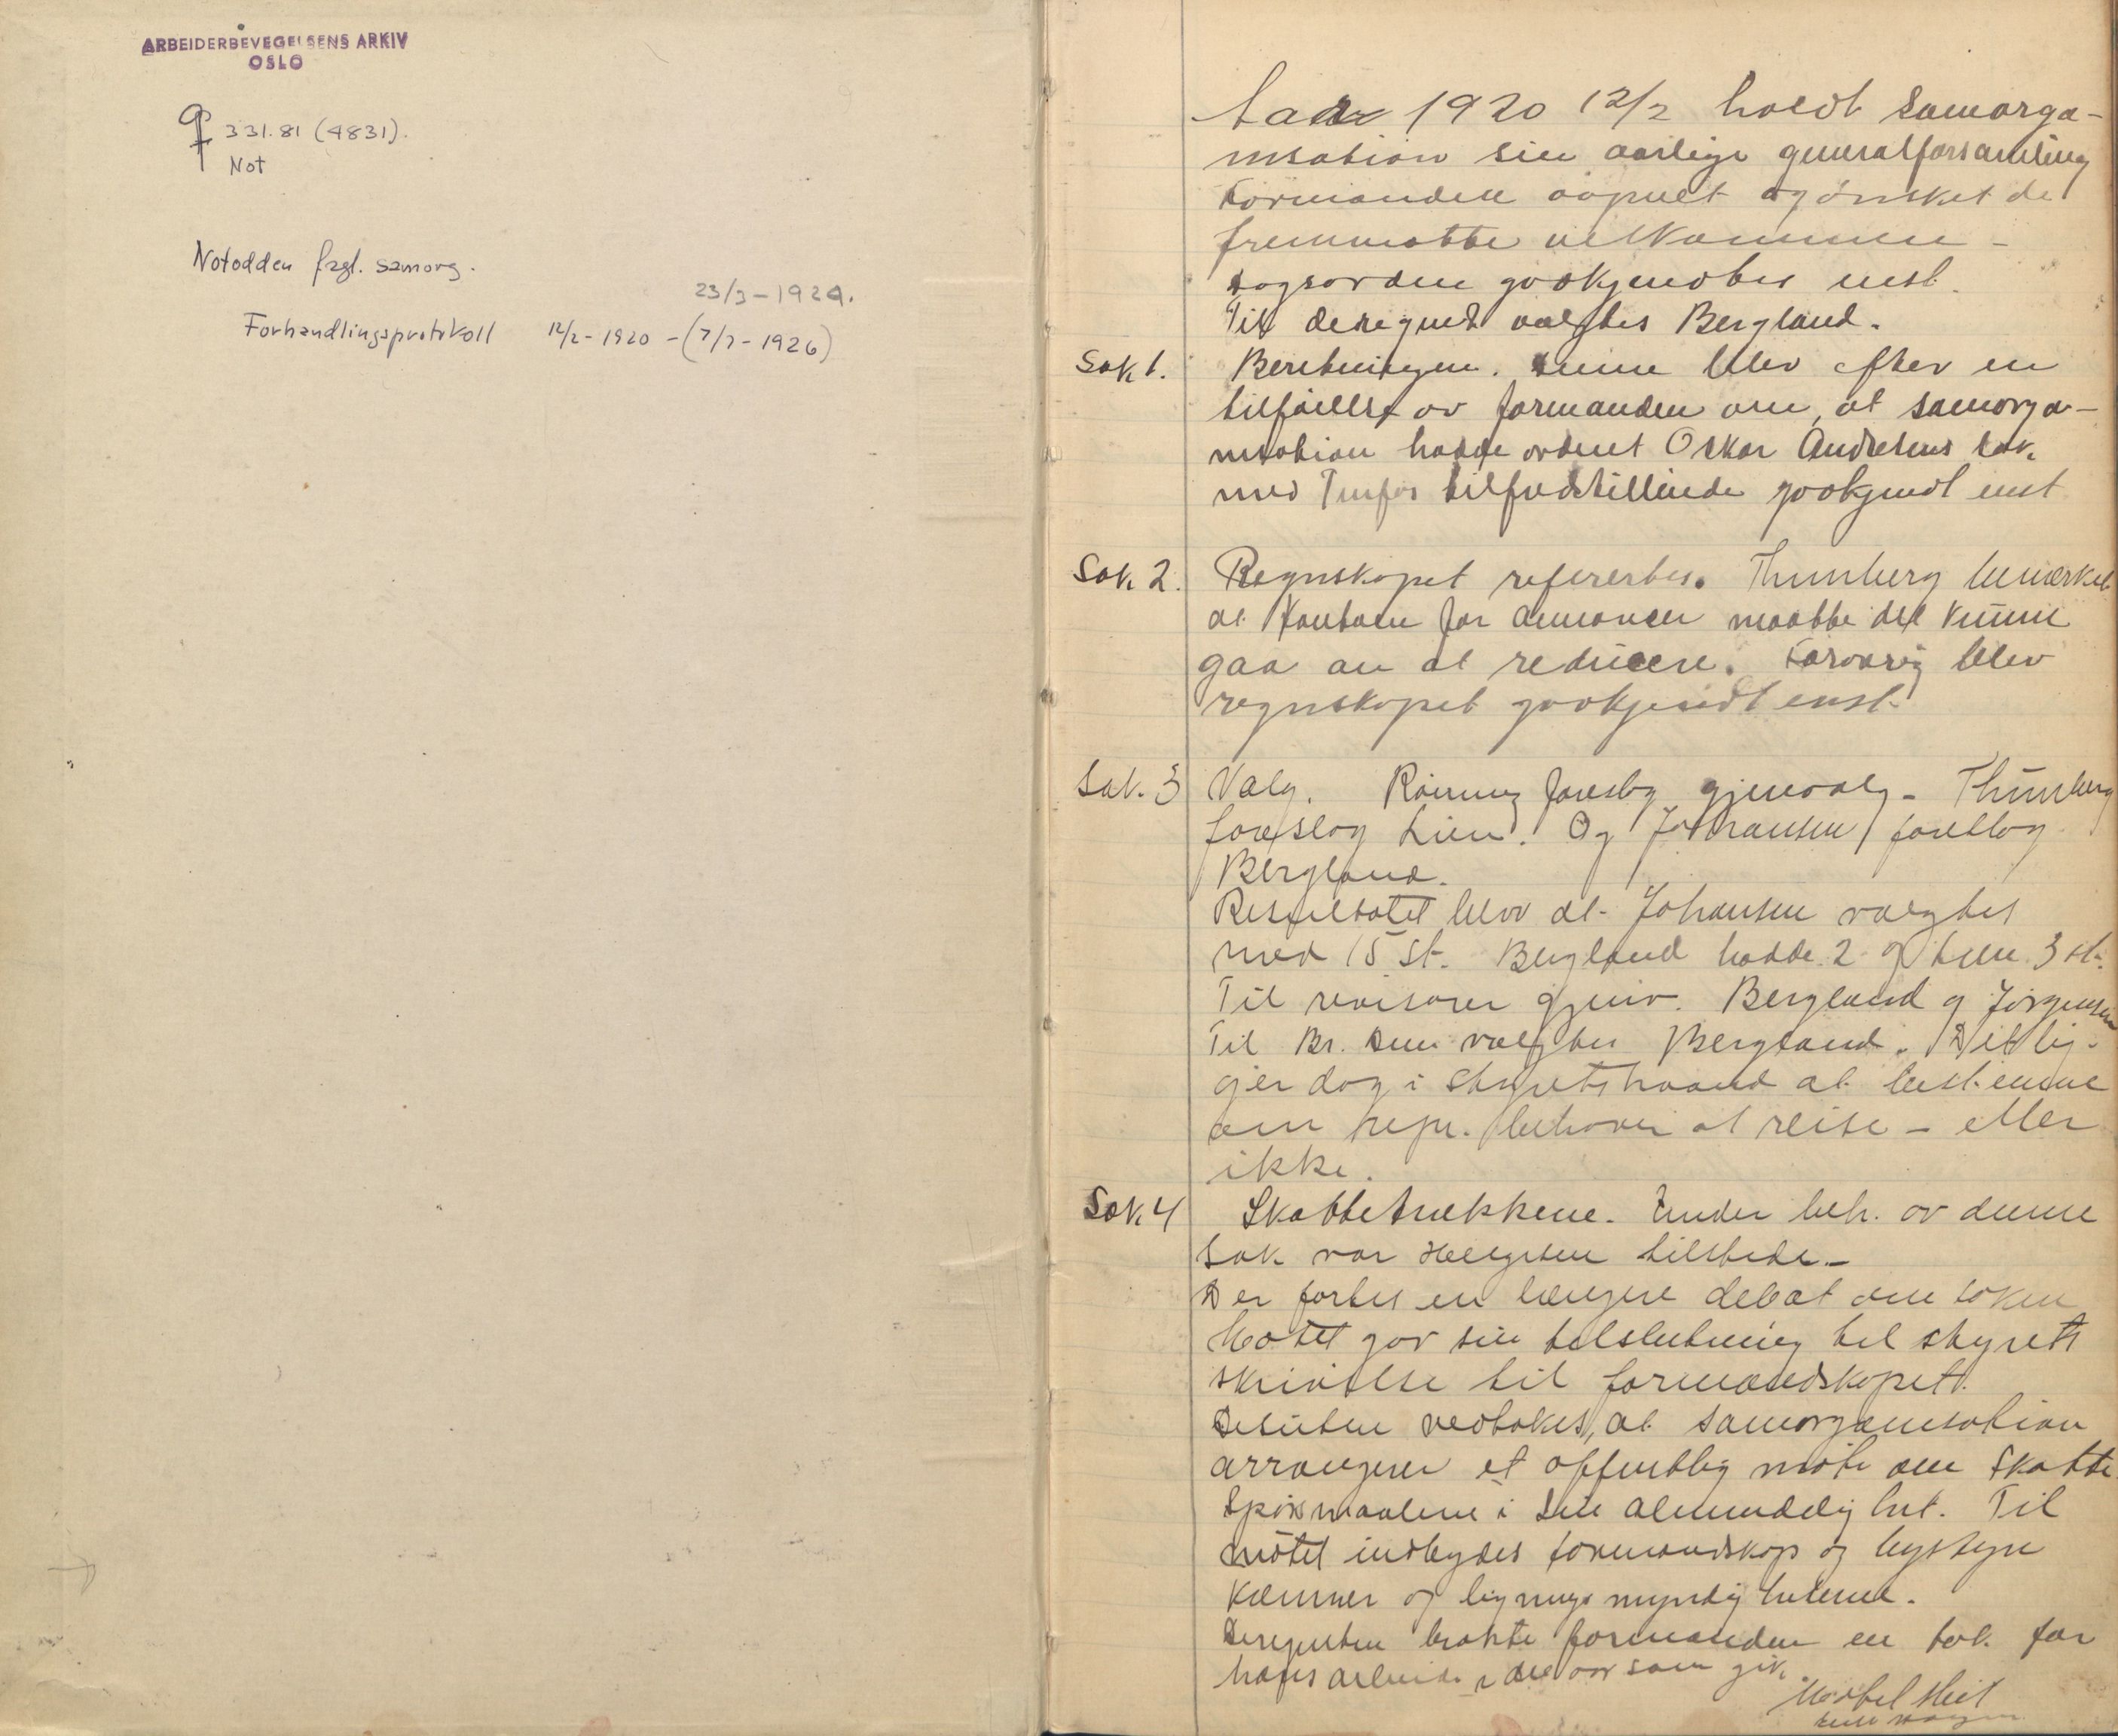 ARBEIDERBEVEGELSENS ARKIV
OSLO
q 331.81 (4831).
Not
Notodden fagl. samorg.
23/3-1924.
Forhandlingsprotokoll 12/2-1920 - (7/7-1926)
Aar 1920 12/2 holdt Samorga-
nisation sin aarlige generalforsamling
Formanden aapnet og ønsket de
fremmøtte velkommen -
Dagsorden godkjendtes enst.
Til dirigent valgtes Bergland.
Sak 1.
Beretningen. Denne blev efter en
tilføielse av formanden om, at samorga-
nisation hadde ordnet Oskar Andresens sak.
med Tinfos tilfredstillende godkjendt enst
Sak 2.
Regnskapet referertes. Thunberg bemerket
at Kontoen for Annoncer maatte det kunne
gaa an at reducere. Forøvrig blev
regnskapet godkjendt enst.
Sak. 3
Valg. Rönning foreslog gjenvalg - Thunberg
foreslog Lien. Og Johansen foreslog
Bergland.
Resultatet blev at Johansen valgtes
med 15 st. Bergland hadde 2 og Lien 3 st.
Til revisorer gjenv. Bergland og Jörgensen
Til Br. valgtes Bergland. Det lig-
ger dog i styrets haand at bestemme
om repr. behøver at reise - eller
ikke.
Sak 4
Skattetrækkene. Under beh. av denne
sak var Helgesen tilstede. -
Der førtes en længere debat om saken
Møtet gav sin tilslutning til styrets
skrivelse til formandskapet.
Desuten vedtokes, at samorganisation
arrangerer et offentlig møte om Skatte
spörsmaalene i sin almindelighet. Til
møtet indbydes formandskap og bystyre
Kæmner og ligningsmyndighetene.
Dirigenten bragte formanden en tak for
hans arbeide i det aar som gik.
Møtet slut